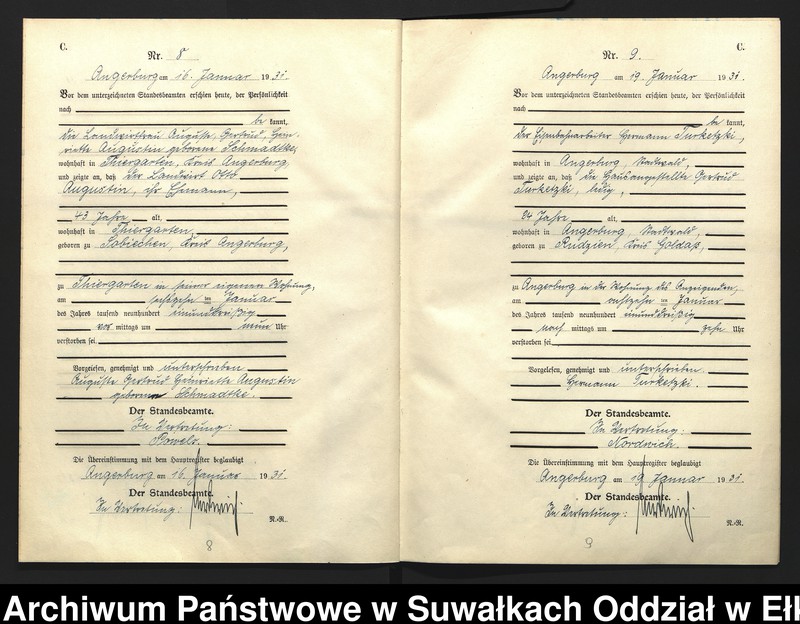 C.
Nr. 8
Angerburg am 16. Januar 1931.
Vor dem unterzeichneten Standesbeamten erschien heute, der Persönlichkeit
nach
be kannt,
die Landwirtfrau Auguste, Gertrud, Hein-
riette Augustin geborene Schmadtke,
wohnhaft in Thiergarten, Kreis Angerburg,
und zeigte an, daß der Landwirt Otto
Augustin, ihr Ehemann,
43 Jahre alt,
wohnhaft in Thiergarten,
geboren zu Sobiechen, Kreis Angerburg,
zu Thiergarten in seiner eigenen Wohnung,
am sechzehn ten Januar
des Jahres tausend neunhundert einunddreißig
vor mittags um neun Uhr
verstorben sei.
Vorgelesen, genehmigt und unterschrieben
Auguste Gertrud Heinriette Augustin
geborene Schmadtke.
Der Standesbeamte.
In Vertretung:
Die Übereinstimmung mit dem Hauptregister beglaubigt
Angerburg am 16. Januar 1931.
Der Standesbeamte.
In Vertretung:
N.-R.
8
C.
Nr. 9.
Angerburg am 19. Januar 1931.
Vor dem unterzeichneten Standesbeamten erschien heute, der Persönlichkeit
nach
be kannt,
der Eisenbahnarbeiter Hermann Turketzki,
wohnhaft in Angerburg, Stadtwald,
und zeigte an, daß die Hausangestellte Gertrud
Turketzki, ledig,
24 Jahre alt,
wohnhaft in Angerburg, Stadtwald,
geboren zu Rudzien, Kreis Goldap,
zu Angerburg in der Wohnung des Anzeigenden,
am achtzehn ten Januar
des Jahres tausend neunhundert einunddreißig
nach mittags um zehn Uhr
verstorben sei.
Vorgelesen, genehmigt und unterschrieben.
Hermann Turketzki.
Der Standesbeamte.
In Vertretung:
Nordwich.
Die Übereinstimmung mit dem Hauptregister beglaubigt
Angerburg am 19. Januar 1931.
Der Standesbeamte.
In Vertretung:
N.-R.
9
Archiwum Państwowe w Suwałkach Oddział w Ełk